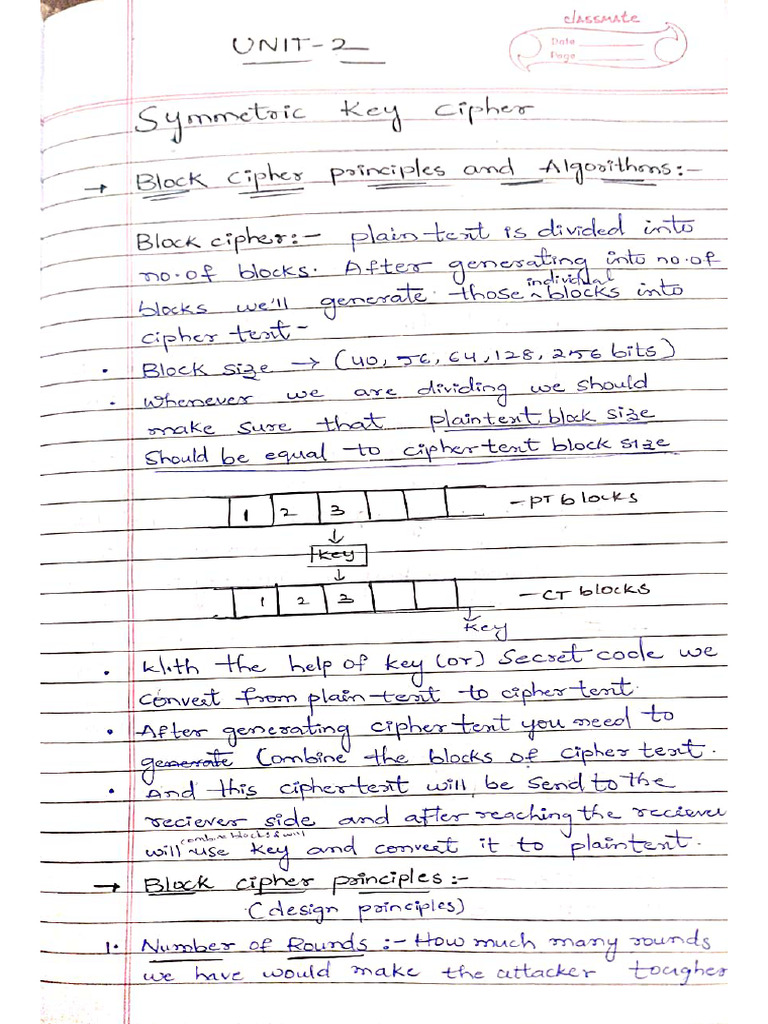 classmate
Date
Page
UNIT-2
Symmetric Key Cipher
→ Block cipher principles and Algorithms:-
Block cipher:- plain text is divided into
no.of blocks. After generating into no.of
individual
blocks we'll generate those ^ blocks into
cipher text-
• Block size → (40, 56, 64, 128, 256 bits)
• whenever we are dividing we should
make sure that plaintext block size
should be equal to ciphertext block size
1 2 3 - PT blocks
↓
key
↓
1 2 3 - CT blocks
key
• With the help of key (or) secret code we
convert from plain text to cipher text.
• After generating cipher text you need to
generate combine the blocks of cipher text.
• And this ciphertext will be send to the
reciever side and after reaching the reciever
combine blocks & will
will ^ use key and convert it to plaintext.
→ Block cipher principles:-
(design principles)
1. Number of Rounds:- How much many rounds
we have would make the attacker tougher